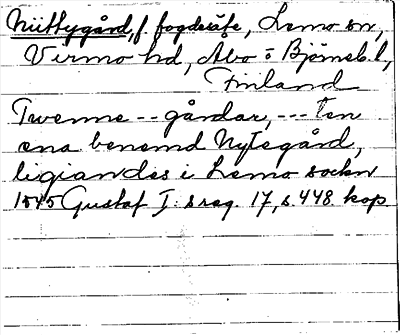 Niittygård, f. fogdesäte, Lemo sn,
Virmo hd, Åbo o Björneb. l,
Finland
Twenne -- gårdar, --- ten
ena benemd Nytegård,
ligiandes i Lemo sockn
1545 Gustaf I:s reg. 17, s. 448 kop.